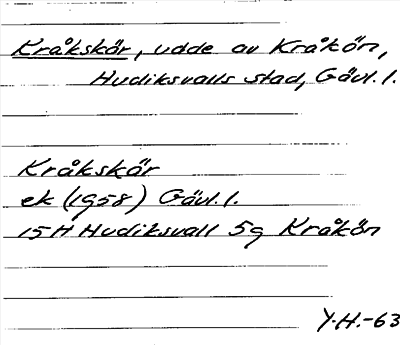 Kråkskär, udde av Kråkön,
Hudiksvalls stad, Gävl. l.
Kråkskär
ek (1958) Gävl. l.
15H Hudiksvall 5g Kråkön
Y.H.-63